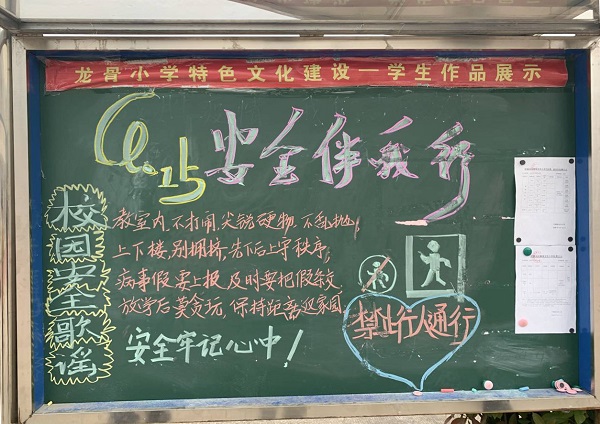 龙骨小学特色文化建设—学生作品展示
安全伴我行
校园安全歌谣
教室内,不打闹,尖锐硬物,不乱抛,
上下楼,别拥挤,先下后上守秩序;
病事假要上报,及时要把假条交,
放学后莫贪玩,保持距离迎家园
安全牢记心中!
禁止行人通行